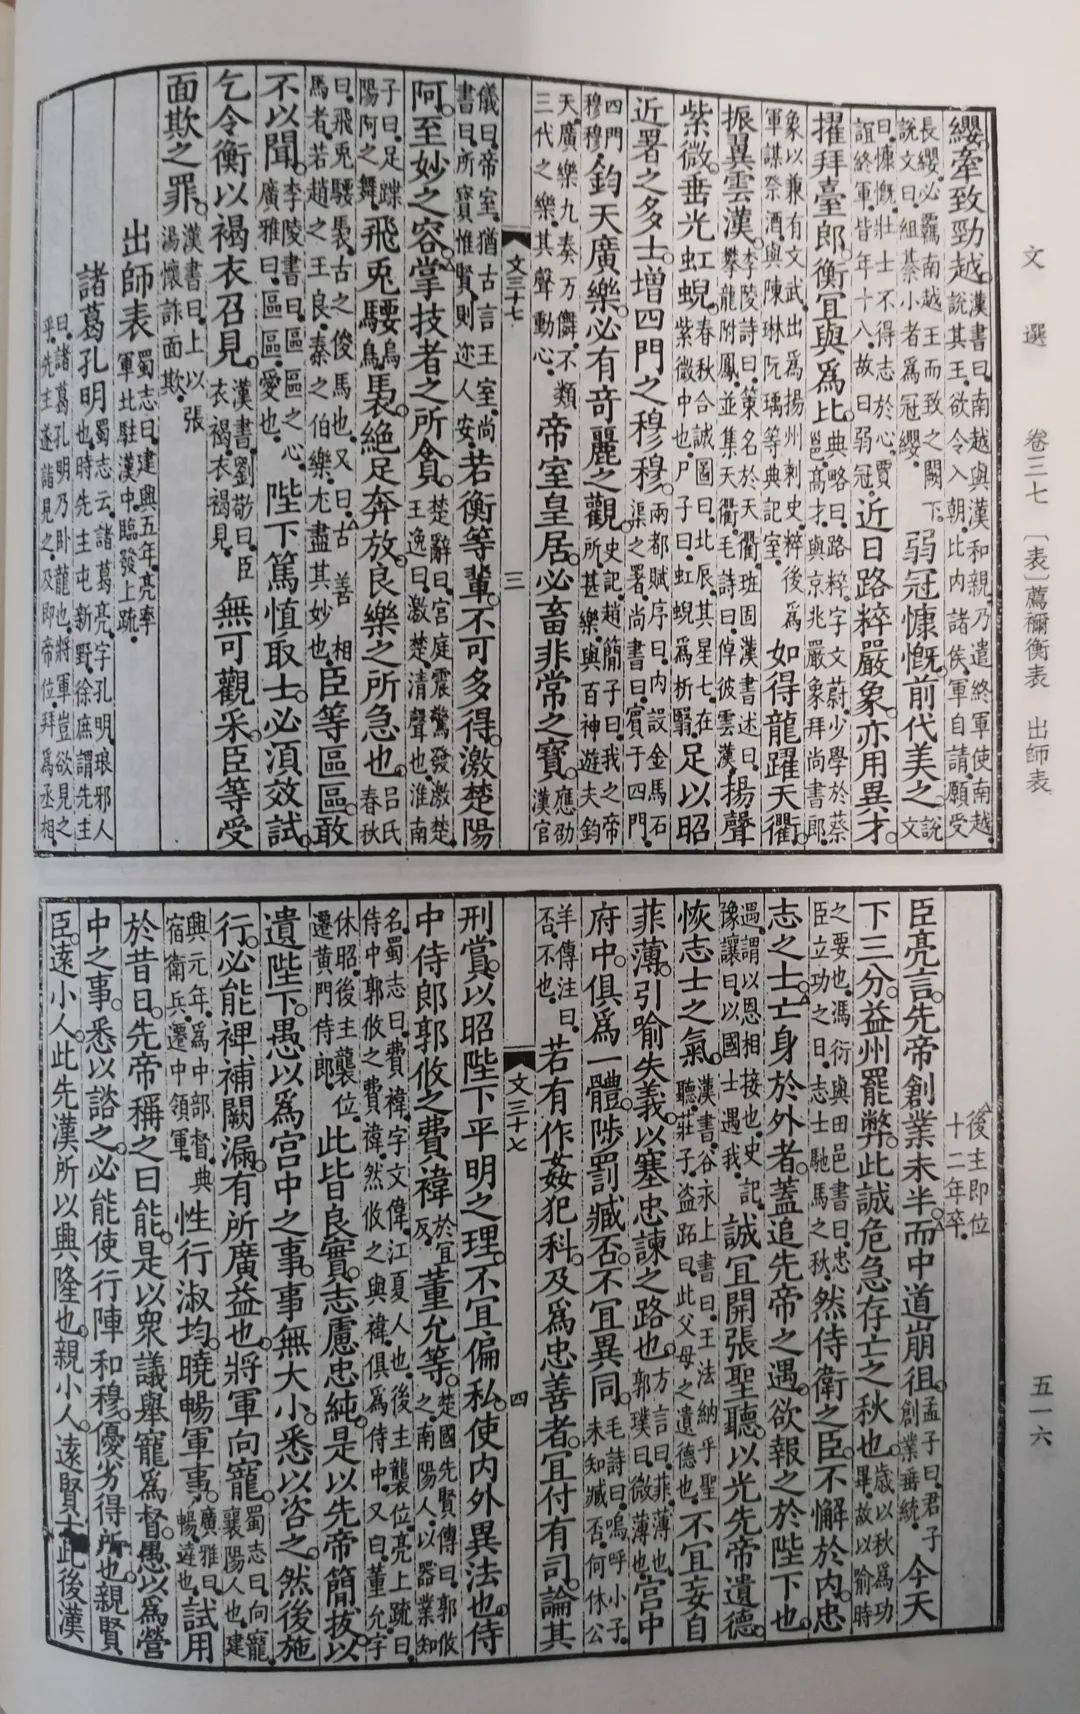 文選 卷三七 〔表〕薦禰衡表 出師表 五一六
纓。牽致勁越。漢書曰。南越與漢和親。乃遣終軍使南越。說其王。欲令入朝。比內諸侯。軍自請。願受
長纓。必羈南越王而致之闕下。說文曰。組綦小者為冠纓。弱冠慷慨。前代美之。說文
曰。慷慨。壯士不得志於心。賈誼終軍皆年十八。故曰弱冠。近日路粹嚴象。亦用異才。
擢拜臺郎。衡宜與爲比。典略曰。路粹。字文蔚。少學於蔡邕。高才。與京兆嚴象拜尚書郎。
象以兼有文武。出爲揚州刺史。粹後爲軍謀祭酒。與陳琳阮瑀等典記室。如得龍躍天衢。
振翼雲漢。李陵詩曰。策名於天衢。班固漢書述曰。攀龍附鳳。並集天衢。毛詩曰。倬彼雲漢。揚聲
紫微。垂光虹蜺。春秋合誠圖曰。北辰。其星七。在紫微中也。尸子曰。虹蜺爲析翳。足以昭
近署之多士。增四門之穆穆。兩都賦序曰。內設金馬石渠之署。尚書曰。賓于四門。
四門穆穆。鈞天廣樂。必有奇麗之觀。史記。趙簡子曰。我之帝所。甚樂。與百神遊夫鈞
天。廣樂九奏万儛。不類三代之樂。其聲動心。帝室皇居。必畜非常之寶。應劭漢官
文三十七 三
儀曰。帝室。猶古言王室。尚書曰。所寳惟賢。則迩人安。若衡等輩。不可多得。激楚陽
阿。至妙之容。掌技者之所貪。楚辭曰。宮庭震驚。發激楚。王逸曰。激楚。清聲也。淮南
子曰。足蹀陽阿之舞。飛兎騕褭。絕足奔放。良樂之所急也。呂氏春秋
曰。飛兎騕褭。古之俊馬也。又曰。古善相馬者。若趙之王良。秦之伯樂。尤盡其妙也。臣等區區。敢
不以聞。李陵書曰。區區之心。廣雅曰。區區。愛也。陛下篤慎取士。必須效試。
乞令衡以褐衣召見。漢書。劉敬曰。臣衣褐。衣褐見。無可觀采。臣等受
面欺之罪。漢書曰。上以張湯懷詐面欺。
出師表蜀志曰。建興五年。亮率軍北駐漢中。臨發上疏。
諸葛孔明蜀志云。諸葛亮。字孔明。琅邪人也。時先主屯新野。徐庶謂先主
曰。諸葛孔明。乃臥龍也。將軍豈欲見之乎。先主遂詣見之。及即帝位。拜爲丞相。
後主即位十二年卒。
臣亮言。先帝創業未半。而中道崩徂。孟子曰。君子創業垂統。今天
下三分。益州罷弊。此誠危急存亡之秋也。歲以秋爲功畢。故以喻時
之要也。馮衍與田邑書曰。忠臣立功之日。志士馳馬之秋。然侍衛之臣。不懈於內。忠
志之士。亡身於外者。蓋追先帝之遇。欲報之於陛下也。
遇。謂以恩相接也。史記。豫讓曰。以國士遇我。誠宜開張聖聽。以光先帝遺德。
恢志士之氣。漢書。谷永上書曰。王法納乎聖聽。莊子。盜跖曰。此父母之遺德也。不宜妄自
菲薄。引喻失義。以塞忠諫之路也。方言曰。菲。薄也。郭璞曰。微薄也。宮中
府中。俱爲一體。陟罰臧否。不宜異同。毛詩曰。嗚呼小子。未知臧否。何休公
羊傳注曰。否。不也。若有作姦犯科。及爲忠善者。宜付有司。論其
文三十七 四
刑賞。以昭陛下平明之理。不宜偏私。使內外異法也。侍
中侍郎郭攸之費褘於宜反董允等。楚國先賢傳曰。郭攸之。南陽人。以器業知
名。蜀志曰。費褘。字文偉。江夏人也。後主襲位。亮上疏曰。侍中郭攸之費褘。然攸之與褘。俱爲侍中。又曰。董允。字
休昭。後主襲位。遷黄門侍郎。此皆良實。志慮忠純。是以先帝簡拔。以
遺陛下。愚以爲宮中之事。事無大小。悉以咨之。然後施
行。必能裨補闕漏。有所廣益也。將軍向寵。蜀志曰。向寵。襄陽人也。建
興元年。爲中部督。典宿衛兵。遷中領軍。性行淑均。曉暢軍事。廣雅曰。暢。達也。試用
於昔日。先帝稱之曰能。是以衆議舉寵爲督。愚以爲營
中之事。悉以諮之。必能使行陣和穆。優劣得所也。親賢
臣。遠小人。此先漢所以興隆也。親小人。遠賢士。此後漢